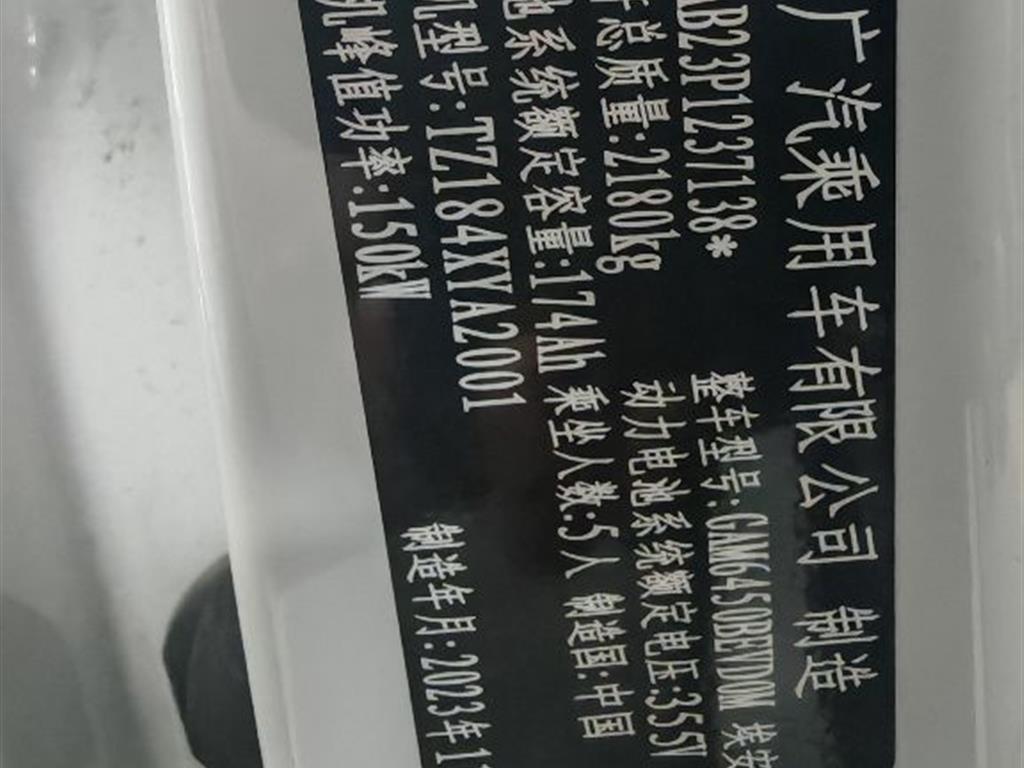 广汽乘用车有限公司 制造
AB23P1237138*
整车型号:GAM6450BEVD0M 埃安
总质量:2180kg
动力电池系统额定电压:355V
电池系统额定容量:174Ah
乘坐人数:5人 制造国:中国
机型号:TZ184XYA2001
机峰值功率:150kW
制造年月:2023年1